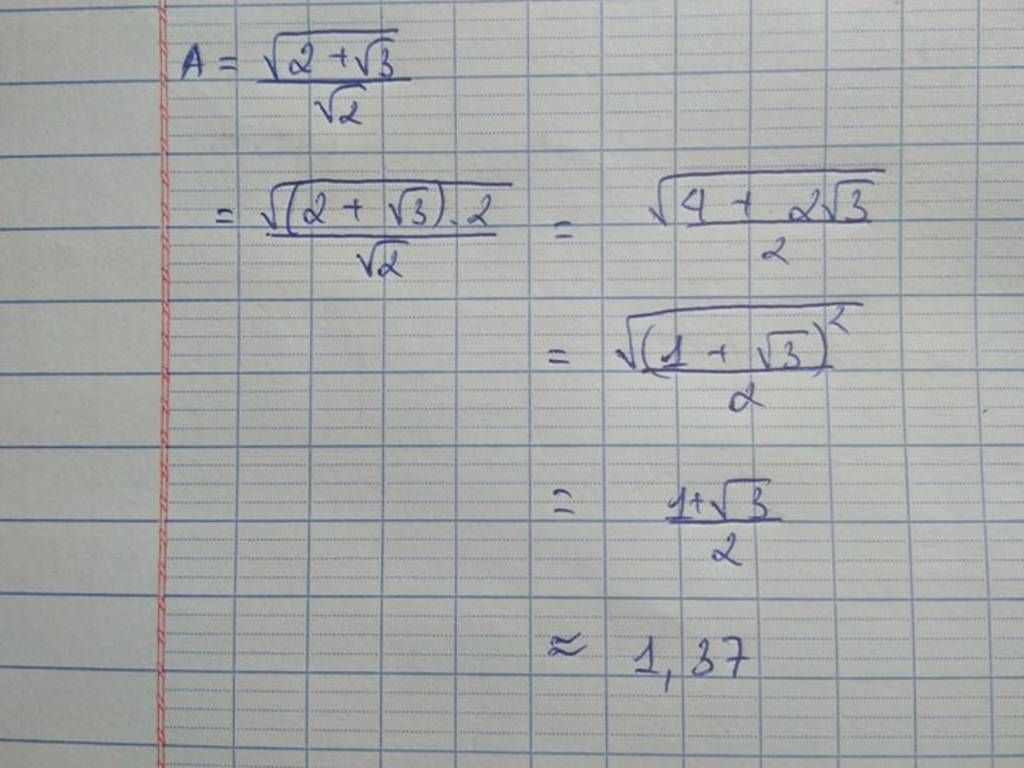 A = √(2 + √3) / √2
= √((2 + √3) . 2) / √2 = √(4 + 2√3) / 2
= √((1 + √3)²) / 2
= (1+√3) / 2
≈ 1,37